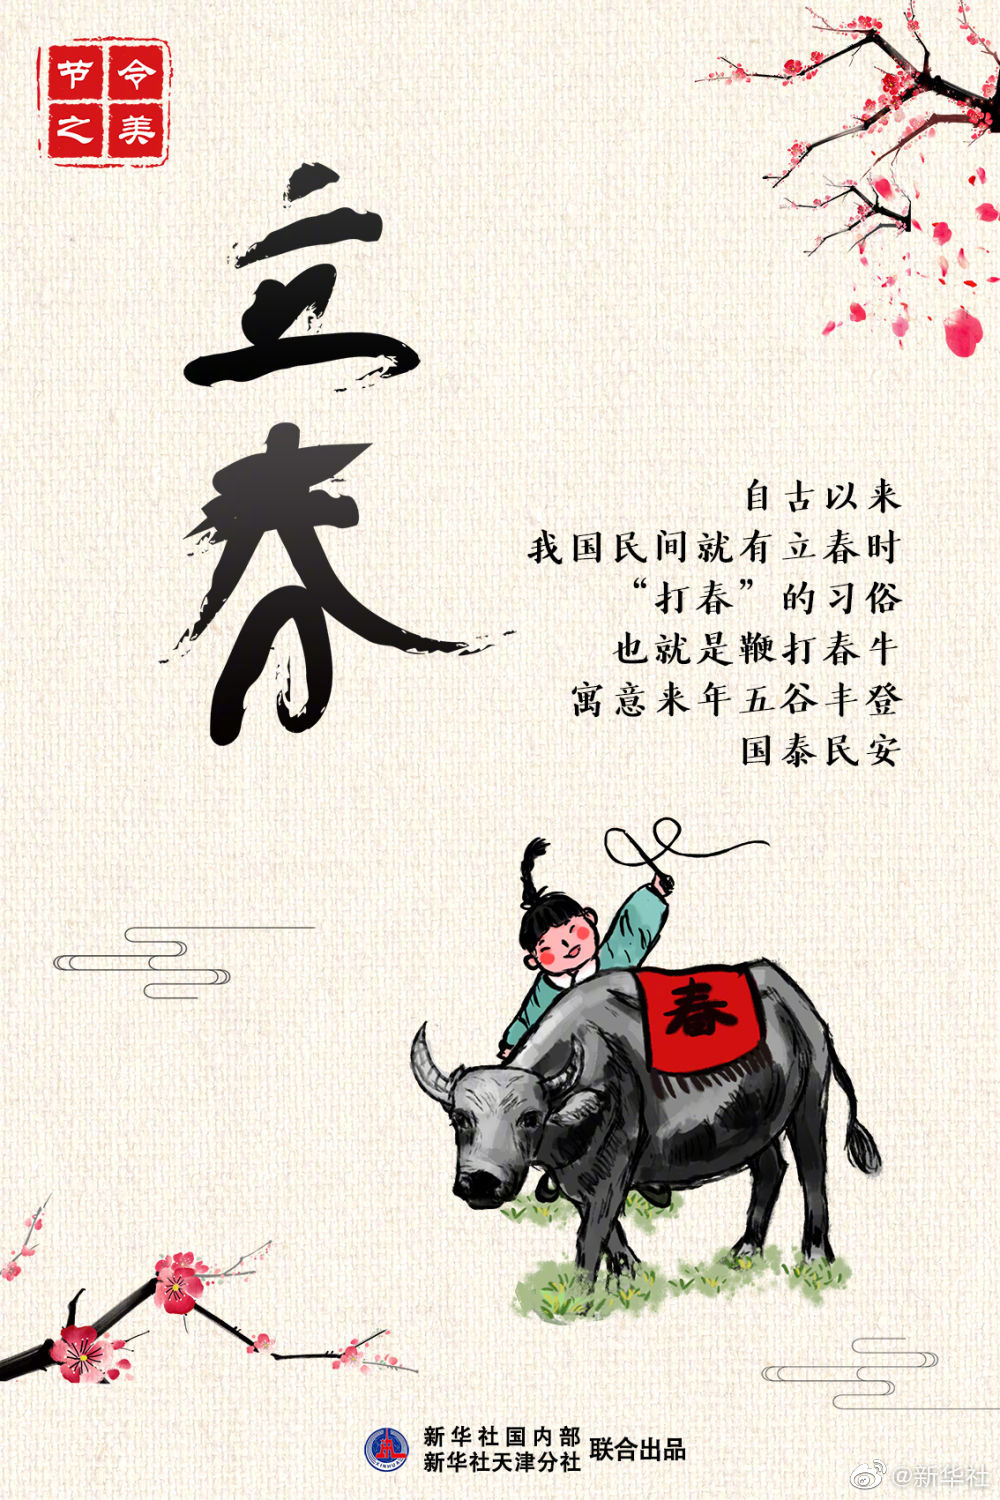 节令
之美
立春
自古以来
我国民间就有立春时
“打春”的习俗
也就是鞭打春牛
寓意来年五谷丰登
国泰民安
春
XINHUA
新华社国内部
新华社天津分社
联合出品
@新华社